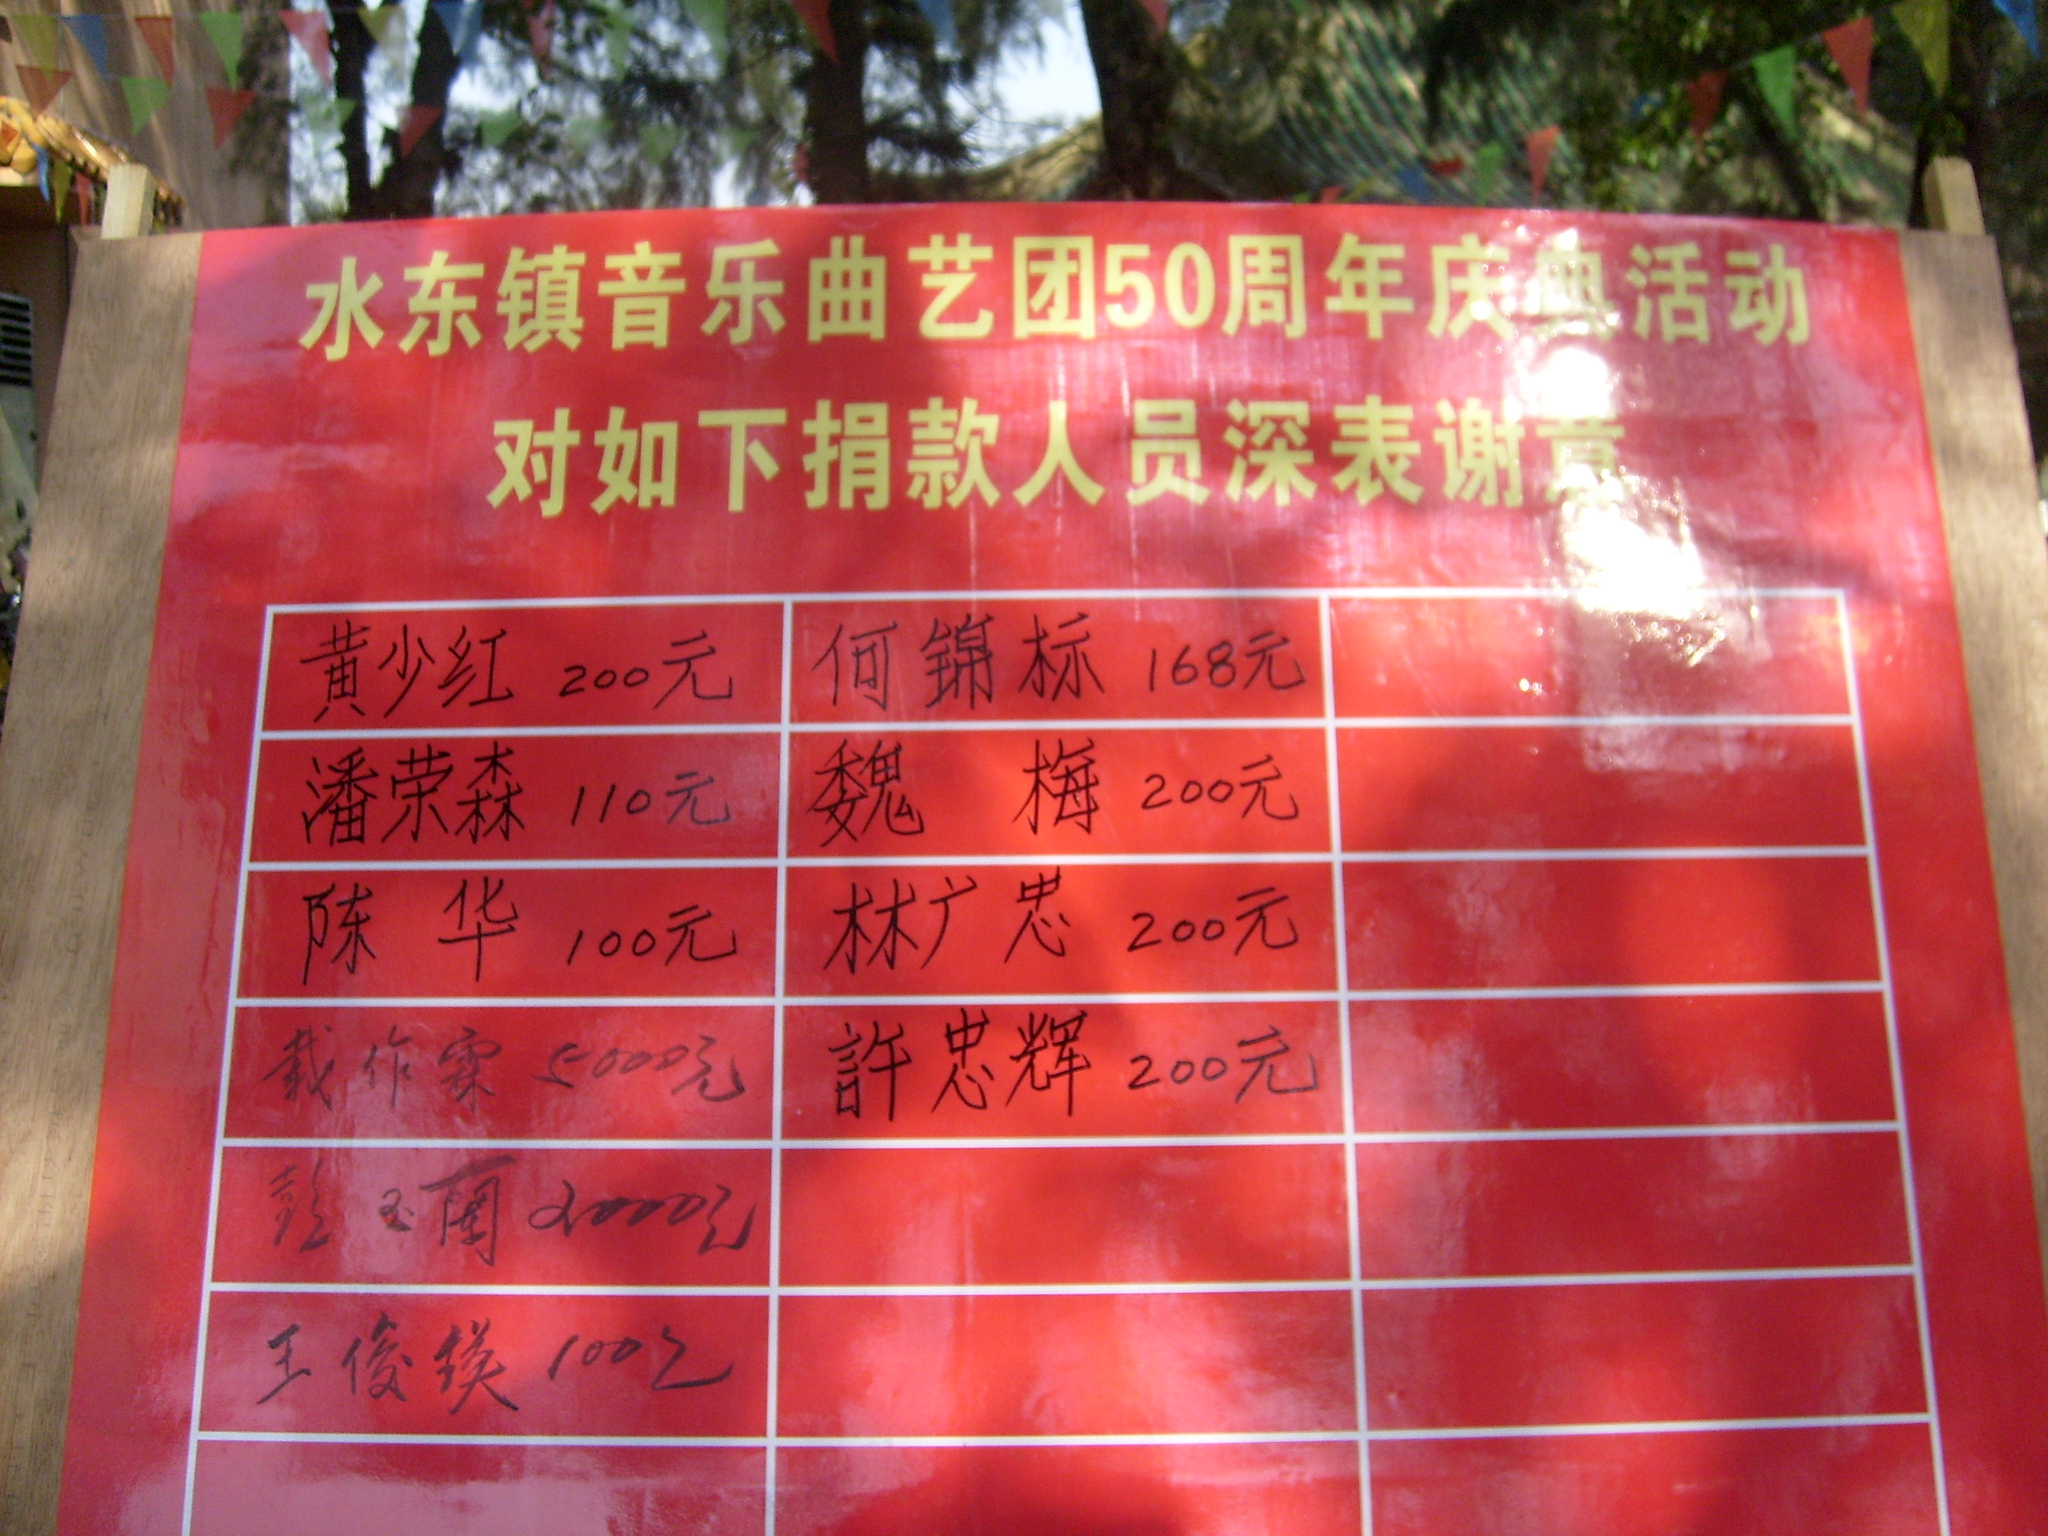 水东镇音乐曲艺团50周年庆典活动
对如下捐款人员深表谢意
黄少红 200元 何锦标 168元
潘荣森 110元 魏 梅 200元
陈 华 100元 林广忠 200元
作霖 5000元 許忠辉 200元
彭玉蘭 元
王俊 100元